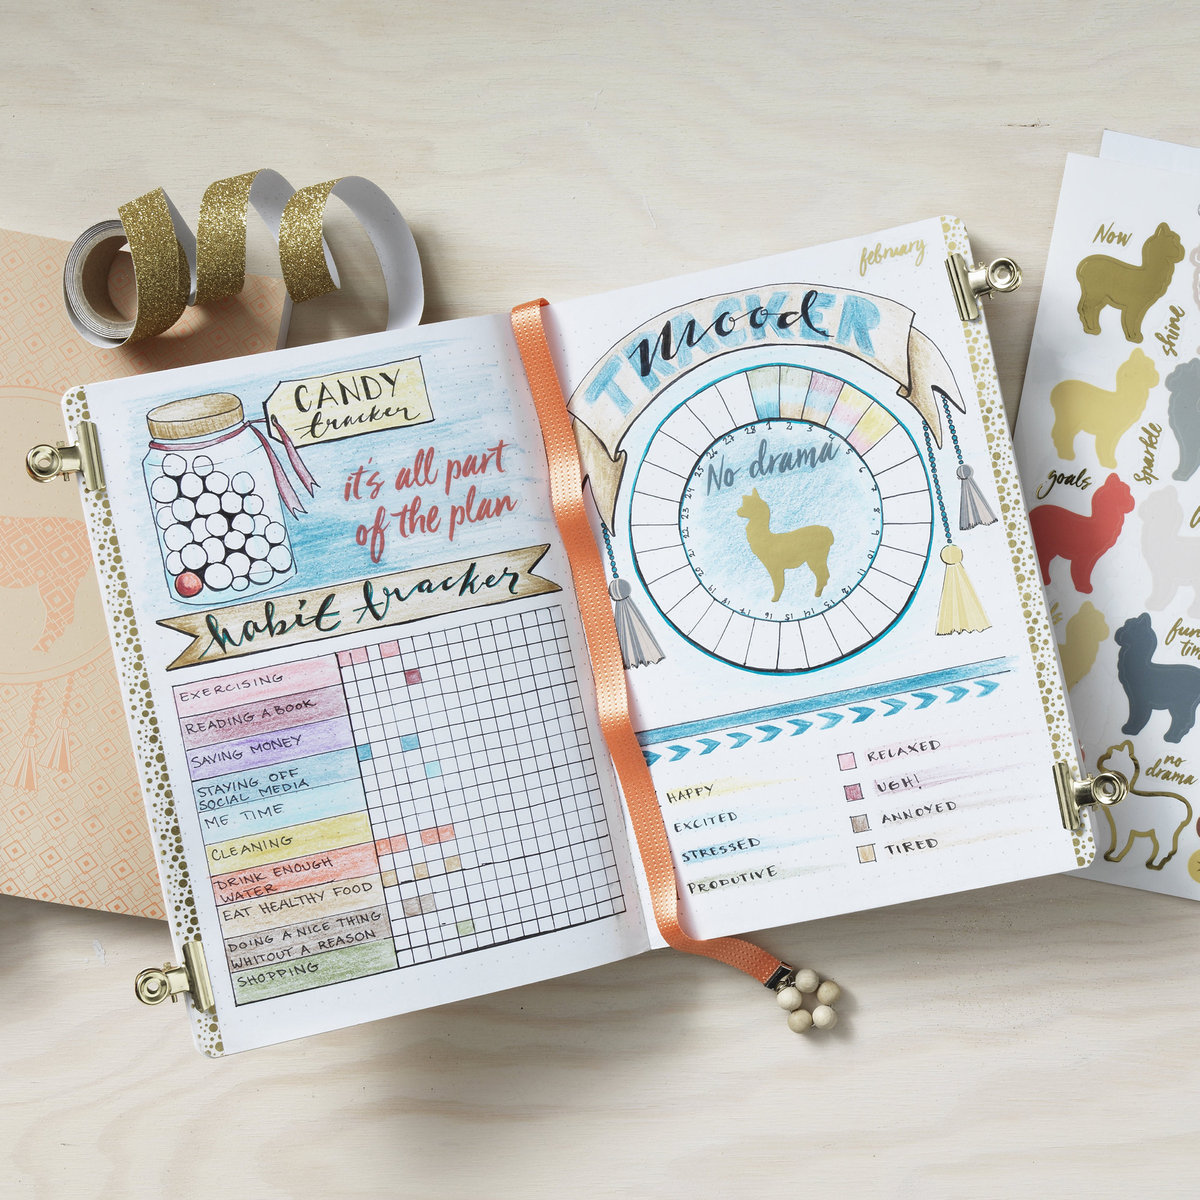 CANDY
tracker
it's all part
of the plan
habit tracker
EXERCISING
READING A BOOK
SAVING MONEY
STAYING OFF
SOCIAL MEDIA
ME TIME
CLEANING
DRINK ENOUGH
WATER
EAT HEALTHY FOOD
DOING A NICE THING
WHITOUT A REASON
SHOPPING
february
mood
TRACKER
27 28 1 2 3
No drama
HAPPY
EXCITED
STRESSED
PRODUTIVE
RELAXED
UGH!
ANNOYED
TIRED
Now
shine
sparkle
goals
fun
time
no
drama